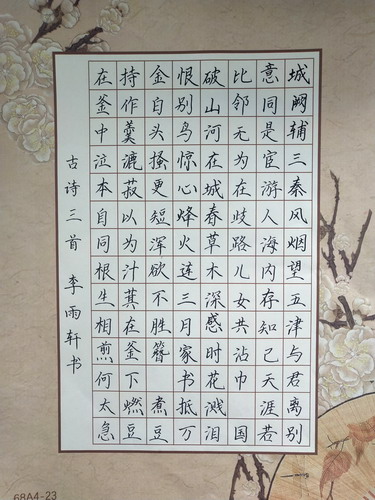 城阙辅三秦风烟望五津与君离别
意同是宦游人海内存知己天涯若
比邻无为在歧路儿女共沾巾 国
破山河在城春草木深感时花溅泪
恨别鸟惊心烽火连三月家书抵万
金自头搔更短浑欲不胜簪 煮豆
持作羹漉菽以为汁萁在釜下燃豆
在釜中泣本自同根生相煎何太急
古诗三首 李雨轩书
68A4-23